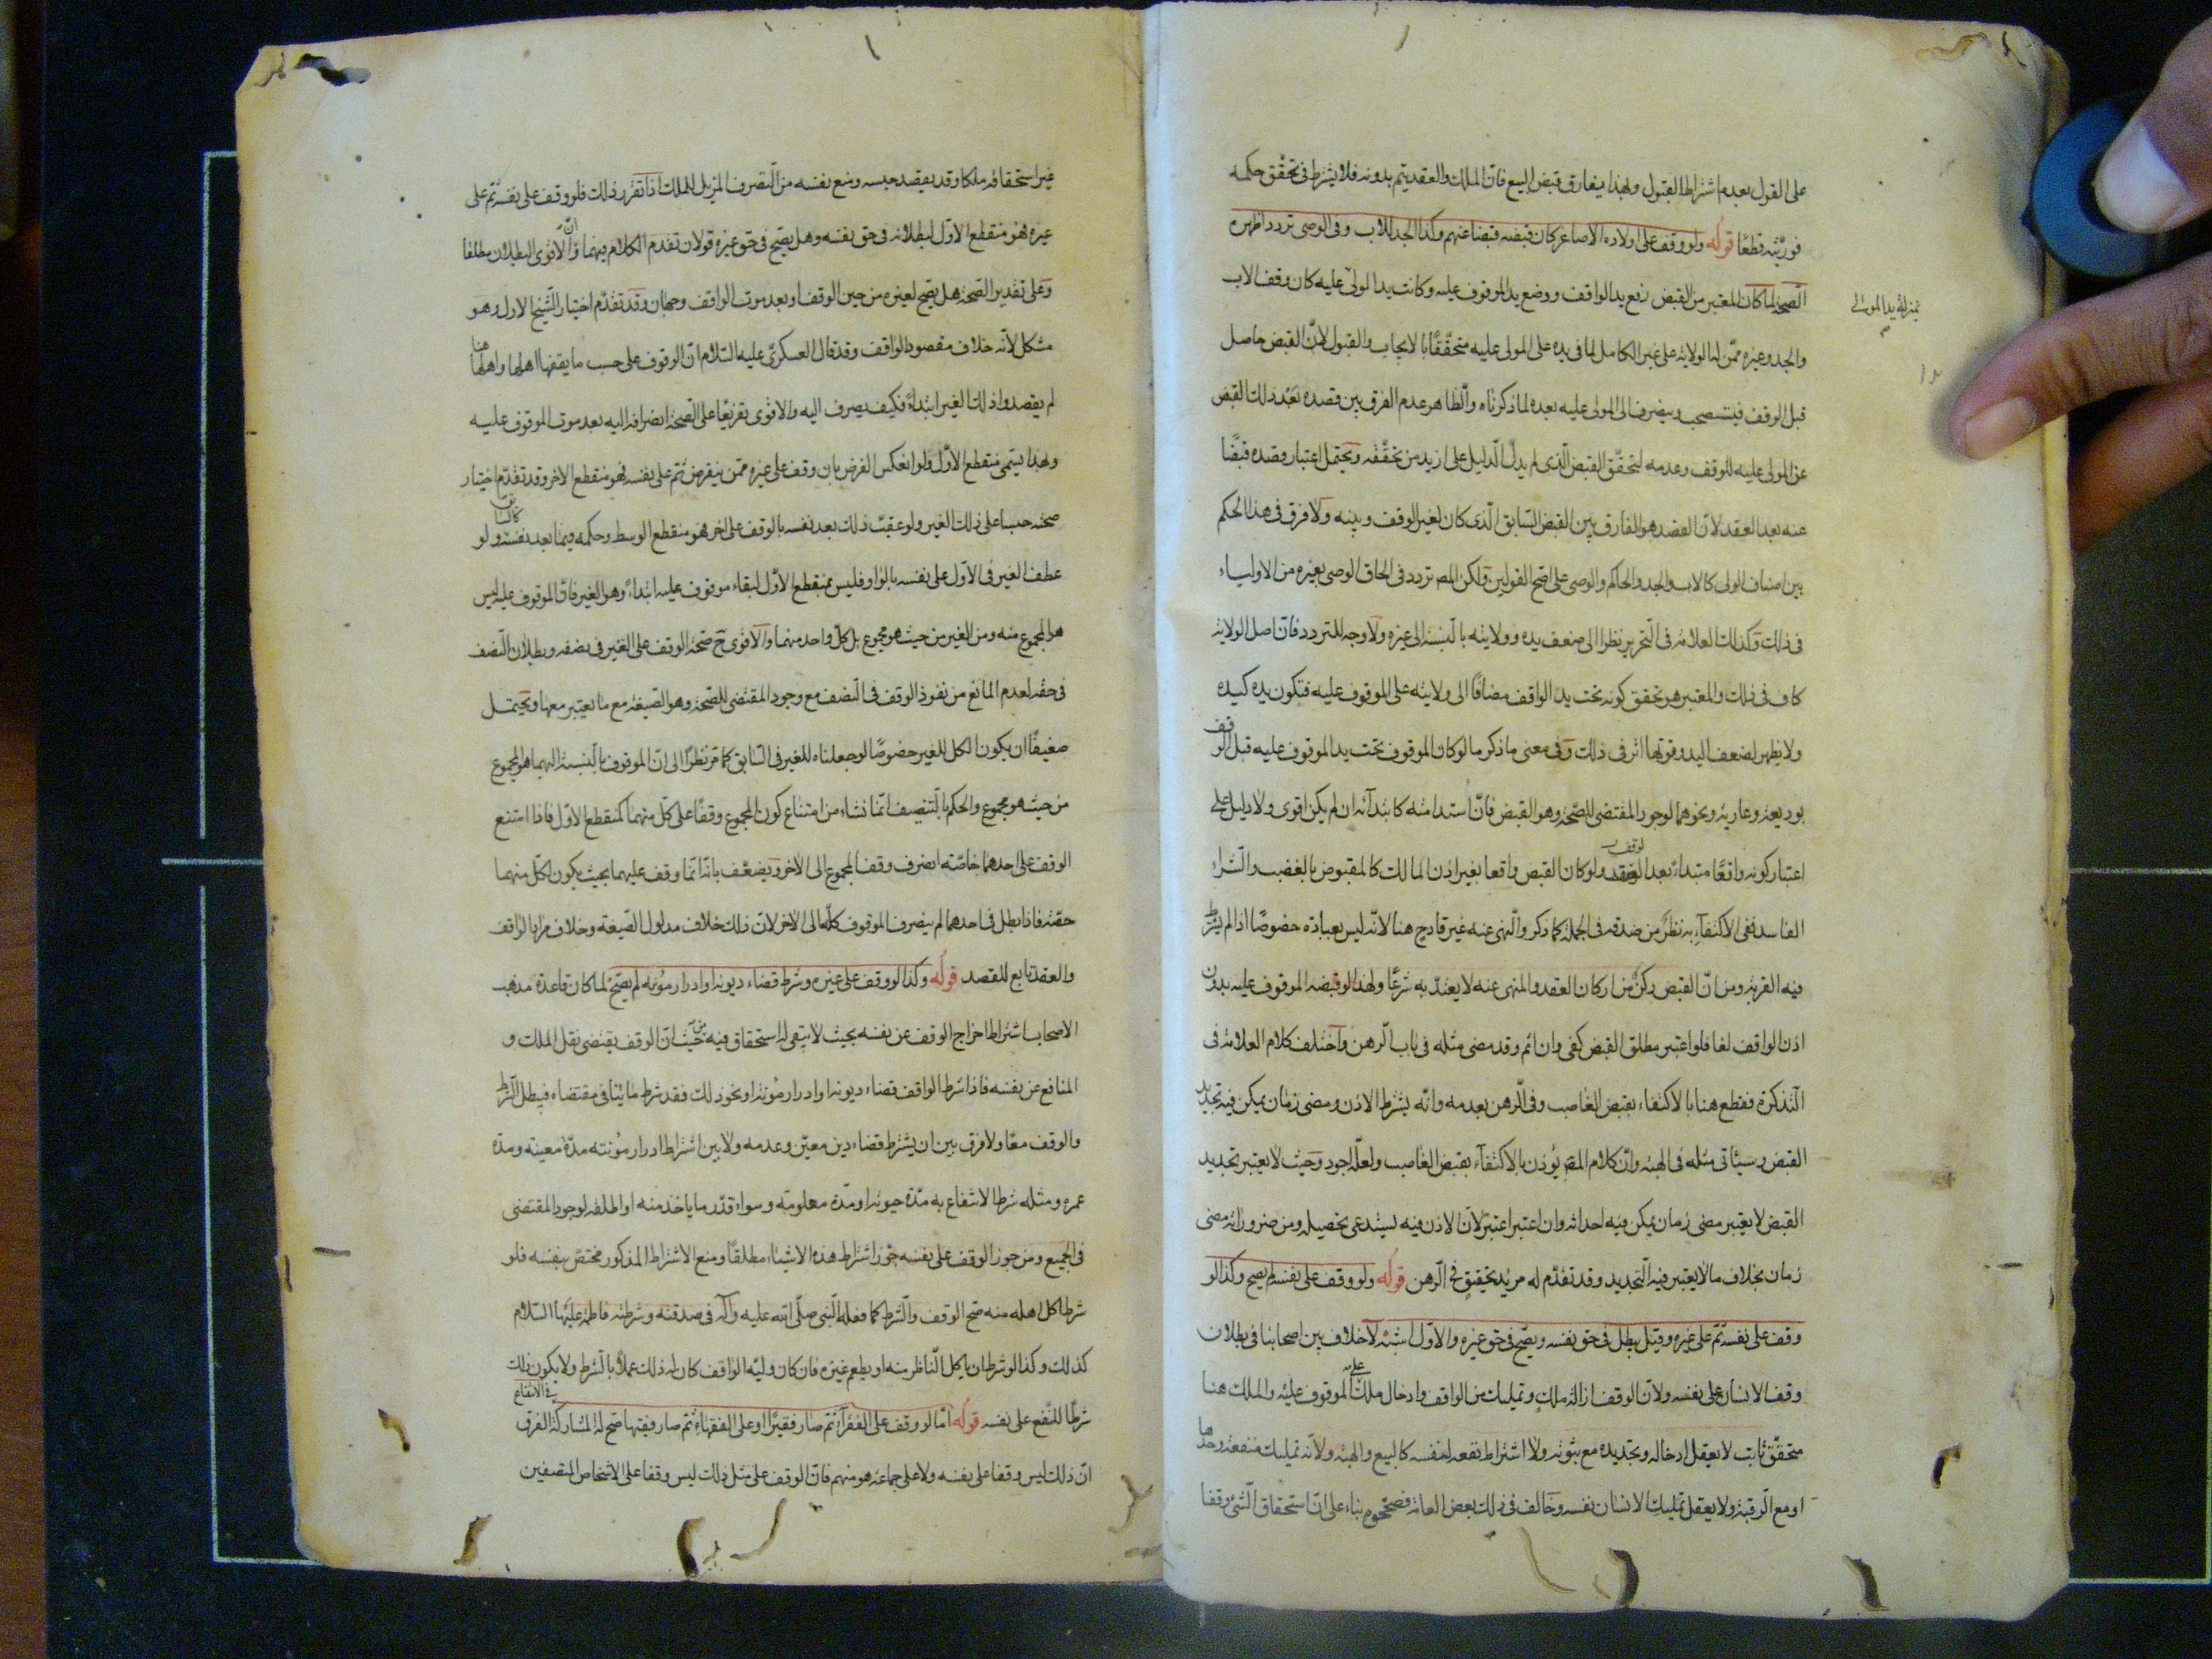 على القول بعدم اشتراط القبول وبهذا يفارق قبض البيع فان الملك والعقد يتم بدونه فلا يشترط في تحقق حكمه
فوريته قطعا قوله ولو وقف على اولاده الاصاغر كان قبضه قبضا عنهم وكذا الجد للاب وفي الوصي تردد اظهره
الصحة لما كان المعتبر من القبض رفع يد الواقف ووضع يد الموقوف عليه وكانت يد الولي عليه كان وقف الاب
بمنزلة يد المولى
والجد وغيره ممن له الولاية على غير الكامل لما في يده على المولى عليه متحققا بالايجاب والقبول لان القبض حاصل
قبل الوقف فيستصحب وينصرف الى المولى عليه بعده لما ذكرناه والظاهر عدم الفرق بين قصده بعد ذلك القبض
عن المولى عليه للوقف وعدمه لتحقق القبض الذي لم يدل الدليل على ازيد من تحققه ويحتمل اعتبار قصده قبضا
عنه بعد العقد لان القصد هو الفارق بين القبض السابق الذي كان لغير الوقف وبينه ولا فرق في هذا الحكم
بين اصناف الولي كالاب والجد والحاكم والوصي على اصح القولين ولكن المص تردد في الحاق الوصي بغيره من الاولياء
في ذلك وكذلك العلامة في التحرير نظرا الى ضعف يده وولايته بالنسبة الى غيره ولا وجه للتردد فان اصل الولاية
كاف في ذلك والمعتبر هو تحقق كونه تحت يد الواقف مضافا الى ولايته على الموقوف عليه فتكون يده كيده
ولا يظهر لضعف اليد وقوتها اثر في ذلك وفي معنى ما ذكر ما لو كان الموقوف تحت يد الموقوف عليه قبل الوقف
بوديعة وعارية ونحوهما لوجود المقتضي للصحة وهو القبض فان استدامته كابتدائه ان لم يكن اقوى ولا دليل على
اعتبار كونه واقعا مبتداء بعد الوقف ولو كان القبض واقعا بغير اذن المالك كالمقبوض بالغصب والشراء
الفاسد ففي الاكتفاء به نظر من صدقه في الجملة كما ذكر والنهي عنه غير قادح هنا لانه ليس بعبادة خصوصا اذا لم يشترط
فيه القربة ومن ان القبض ركن من اركان العقد والمنهي عنه لا يعتد به شرعا ولهذا لو قبضه الموقوف عليه بدون
اذن الواقف لغا فلو اعتبر مطلق القبض كفى وان اثم وقد مضى مثله في باب الرهن واختلف كلام العلامة في
التذكرة فقطع هنا بالاكتفاء بقبض الغاصب وفي الرهن بعدمه وانه يشترط الاذن ومضى زمان يمكن فيه تجديد
القبض وسياتي مثله في الهبة وان كلام المص يؤذن بالاكتفاء بقبض الغاصب ولعله اجود وحيث لا يعتبر تجديد
القبض لا يعتبر مضى زمان يمكن فيه احداثه وان اعتبر اعتبر لان الاذن فيه يستدعي تحصيله ومن ضروراته مضى
زمان بخلاف ما لا يعتبر فيه التجديد وقد تقدم له مزيد تحقيق في الرهن قوله ولو وقف على نفسه لم يصح وكذا لو
وقف على نفسه ثم على غيره وقيل يبطل في حق نفسه ويصح في حق غيره والاول اشبه لا خلاف بين اصحابنا في بطلان
وقف الانسان على نفسه ولان الوقف ازالة ملك وتمليك من الواقف وادخال ملك على الموقوف عليه والملك هنا
متحقق ثابت لا يعقل ادخاله وتجديده مع ثبوته ولا اشتراط نفعه لنفسه كالبيع والهبة ولانه تمليك منفعة وحدها
او مع الرقبة ولا يعقل تمليك الانسان نفسه وخالف في ذلك بعض العامة فصححوه بناء على ان استحقاق الشئ وقفا
غير استحقاقه ملكا وقد يقصد حبسه ومنع نفسه من التصرف المزيل للملك اذا تقرر ذلك فلو وقف على نفسه ثم على
غيره فهو منقطع الاول لبطلانه في حق نفسه وهل يصح في حق غيره قولان تقدم الكلام فيهما وان الاقوى البطلان مطلقا
وعلى تقدير الصحة هل يصح لغيره من حين الوقف او بعد موت الواقف وجهان وقد تقدم اختيار الشيخ الاول وهو
مشكل لانه خلاف مقصود الواقف وقد قال العسكري عليه السلام ان الوقوف على حسب ما يقفها اهلها واهلها هنا
لم يقصدوا ذلك الغير ابتداء فكيف يصرف اليه والاقوى تفريعا على الصحة انصرافه اليه بعد موت الموقوف عليه
ولهذا يسمى منقطع الاول ولو انعكس الفرض بان وقف على غيره ممن ينقرض ثم على نفسه فهو منقطع الاخر وقد تقدم اختيار
صحته حبسا على ذلك الغير ولو عقب ذلك بعد نفسه بالوقف على اخر فهو منقطع الوسط وحكمه فيما بعد نفسه كالسابق ولو
عطف الغير في الاول على نفسه بالواو فليس بمنقطع الاول لبقاء موقوف عليه ابتداء وهو الغير فان الموقوف عليه ليس
هو المجموع منه ومن الغير من حيث هو مجموع بل كل واحد منهما والاقوى ح صحة الوقف على الغير في نصفه وبطلان النصف
في حقه لعدم المانع من نفوذ الوقف في النصف مع وجود المقتضي للصحة وهو الصيغة مع ما يعتبر معها ويحتمل
ضعيفا ان يكون الكل للغير خصوصا لو جعلناه للغير في السابق كما مر نظرا الى ان الموقوف بالنسبة اليهما هو المجموع
من حيث هو مجموع والحكم بالتنصيف انما نشاء من امتناع كون المجموع وقفا على كل منهما كمنقطع الاول فاذا امتنع
الوقف على احدهما خاصة انصرف وقف المجموع الى الاخر ويضعف بانه انما وقف عليهما بحيث يكون لكل منهما
حصة فاذا بطل في احدهما لم ينصرف الموقوف كله الى الاخر لان ذلك خلاف مدلول الصيغة وخلاف مراد الواقف
والعقد تابع للقصد قوله وكذا لو وقف على غيره وشرط قضاء ديونه او ادرار مؤنته لم يصح لما كان قاعدة مذهب
الاصحاب اشتراط اخراج الوقف عن نفسه بحيث لا يبقى له استحقاق فيه من حيث ان الوقف يقتضي نقل الملك و
المنافع عن نفسه فاذا شرط الواقف قضاء ديونه او ادرار مؤنته او نحو ذلك فقد شرط ما ينافي مقتضاه فيبطل الشرط
والوقف معا ولا فرق بين ان يشترط قضاء دين معين وعدمه ولا بين اشتراط ادرار مؤنته مدة معينة ومدة
عمره ومثله شرط الانتفاع به مدة حيوته او مدة معلومة وسواء قدر ما ياخذ منه او اطلقه لوجود المقتضي
في الجميع ومن جوز الوقف على نفسه جوز اشتراط هذه الاشياء مطلقا ومنع الاشتراط المذكور مختص بنفسه فلو
شرط اكل اهله منه صح الوقف والشرط كما فعله النبي صلى الله عليه وآله في صدقته وشرطته فاطمة عليها السلام
كذلك وكذا لو شرط ان ياكل الناظر منه او يطعم غيره فان كان وليه الواقف كان له ذلك عملا بالشرط ولا يكون ذلك
شرطا للنفع على نفسه قوله اما لو وقف على الفقراء ثم صار فقيرا او على الفقهاء ثم صار فقيها صح له المشاركة في الانتفاع الفرق
ان ذلك ليس وقفا على نفسه ولا على جماعة هو منهم فان الوقف على مثل ذلك ليس وقفا على الاشخاص المتصفين